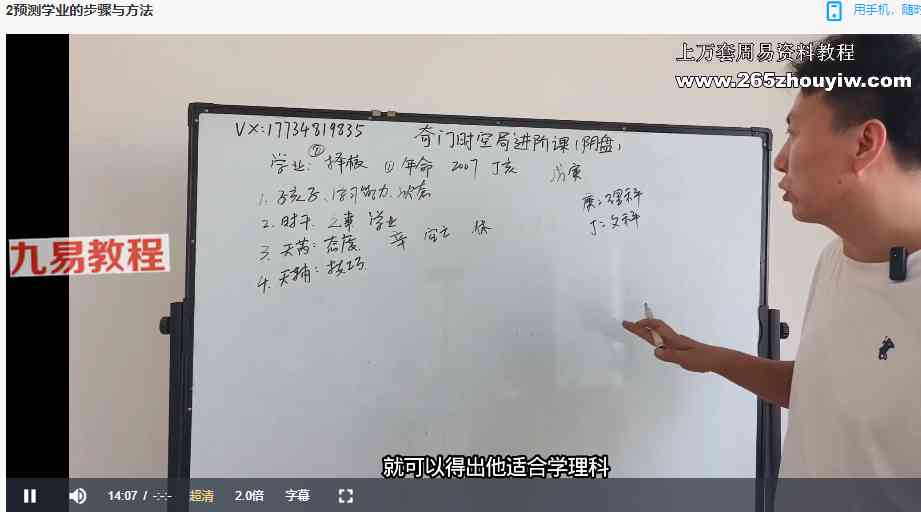 2预测学业的步骤与方法
用手机，随时
上万套周易资料教程
www.265zhouyiw.com
VX:17734819835
奇门时空局进阶课(阴盘)
学业: ② 择校 ① 年命 2007 丁亥
1. 学习能力、状态
庚:理科
2. 时干 之事 学业
丁:文科
3. 天芮:态度
4. 天辅:技巧
九易教程
就可以得出他适合学理科
14:07 / -:-:-
超清
2.0倍
字幕